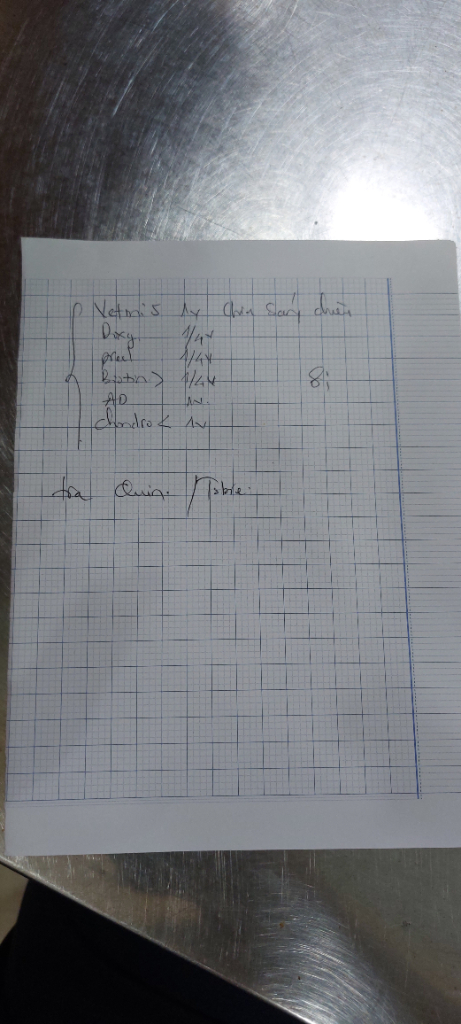 Vetmi 5 1v Chia Sáng chiều
Doxy. 1/4v
pred 1/4v
biotin > 1/4v 8i
AD 1v.
chondro < 1v
tra Quin. Tobre.